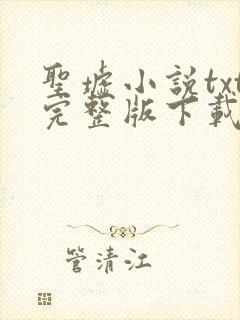 聖墟小説txt
完整版下載
管清江